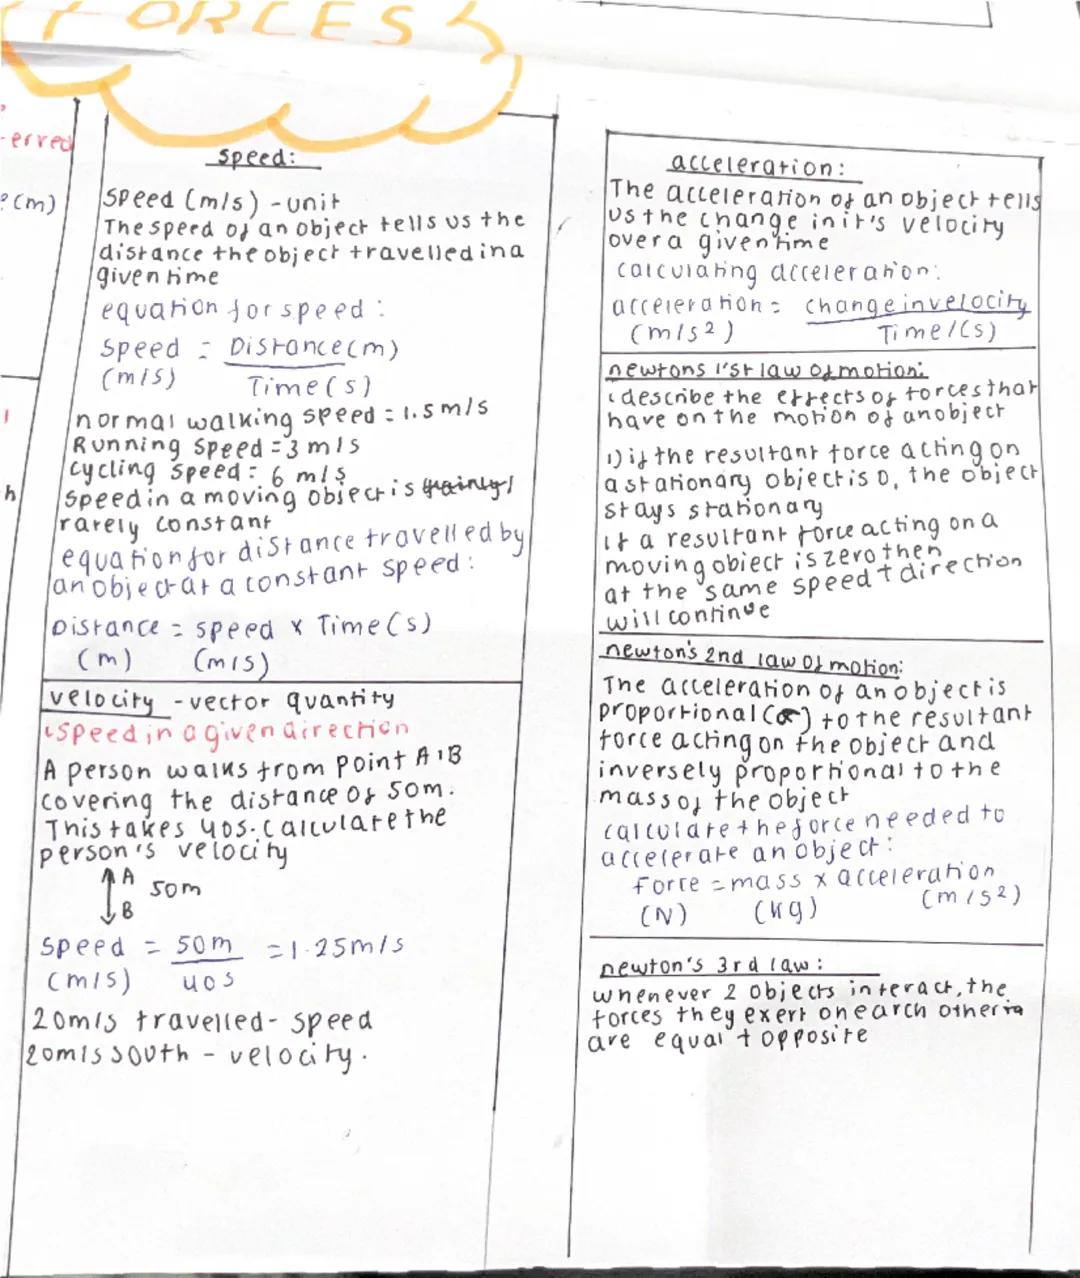 FORCES
erved
(m)
h
speed:
speed (m/s) - unit
The speed of an object tells us the
distance the object travelled in a
given time
equation for speed:
speed = Distance (m)
(m/s) Time (s)
normal walking speed = 1.5 m/s
Running speed = 3 m/s
cycling speed = 6 m/s
speed in a moving object is
rarely constant
equation for distance travelled by
an object at a constant speed:
Distance = speed x Time (s)
(m) (m/s)
velocity - vector quantity
speed in a given direction
A person walks from point A B
covering the distance of 50m.
This takes 40s. Calculate the
person's velocity
A 50m
B
speed = 50m = 1.25m/s
(m/s) 40s
20m/s travelled - speed
20m/s south - velocity.
acceleration:
The acceleration of an object tells
us the change in it's velocity
over a given time
calculating acceleration:
acceleration = change in velocity
(m/s2) Time/(s)
newtons 1'st law of motion:
describe the effects of forces that
have on the motion of an object
1) if the resultant force acting on
a stationary object is 0, the object
stays stationary
if a resultant force acting on a
moving object is zero then
at the same speed + direction
will continue
newton's 2nd law of motion:
The acceleration of an object is
proportional (∝) to the resultant
force acting on the object and
inversely proportional to the
mass of the object
calculate the force needed to
accelerate an object:
force = mass x acceleration
(N) (kg) (m/s2)
newton's 3rd law:
whenever 2 objects interact, the
forces they exert on earch other
are equal + opposite